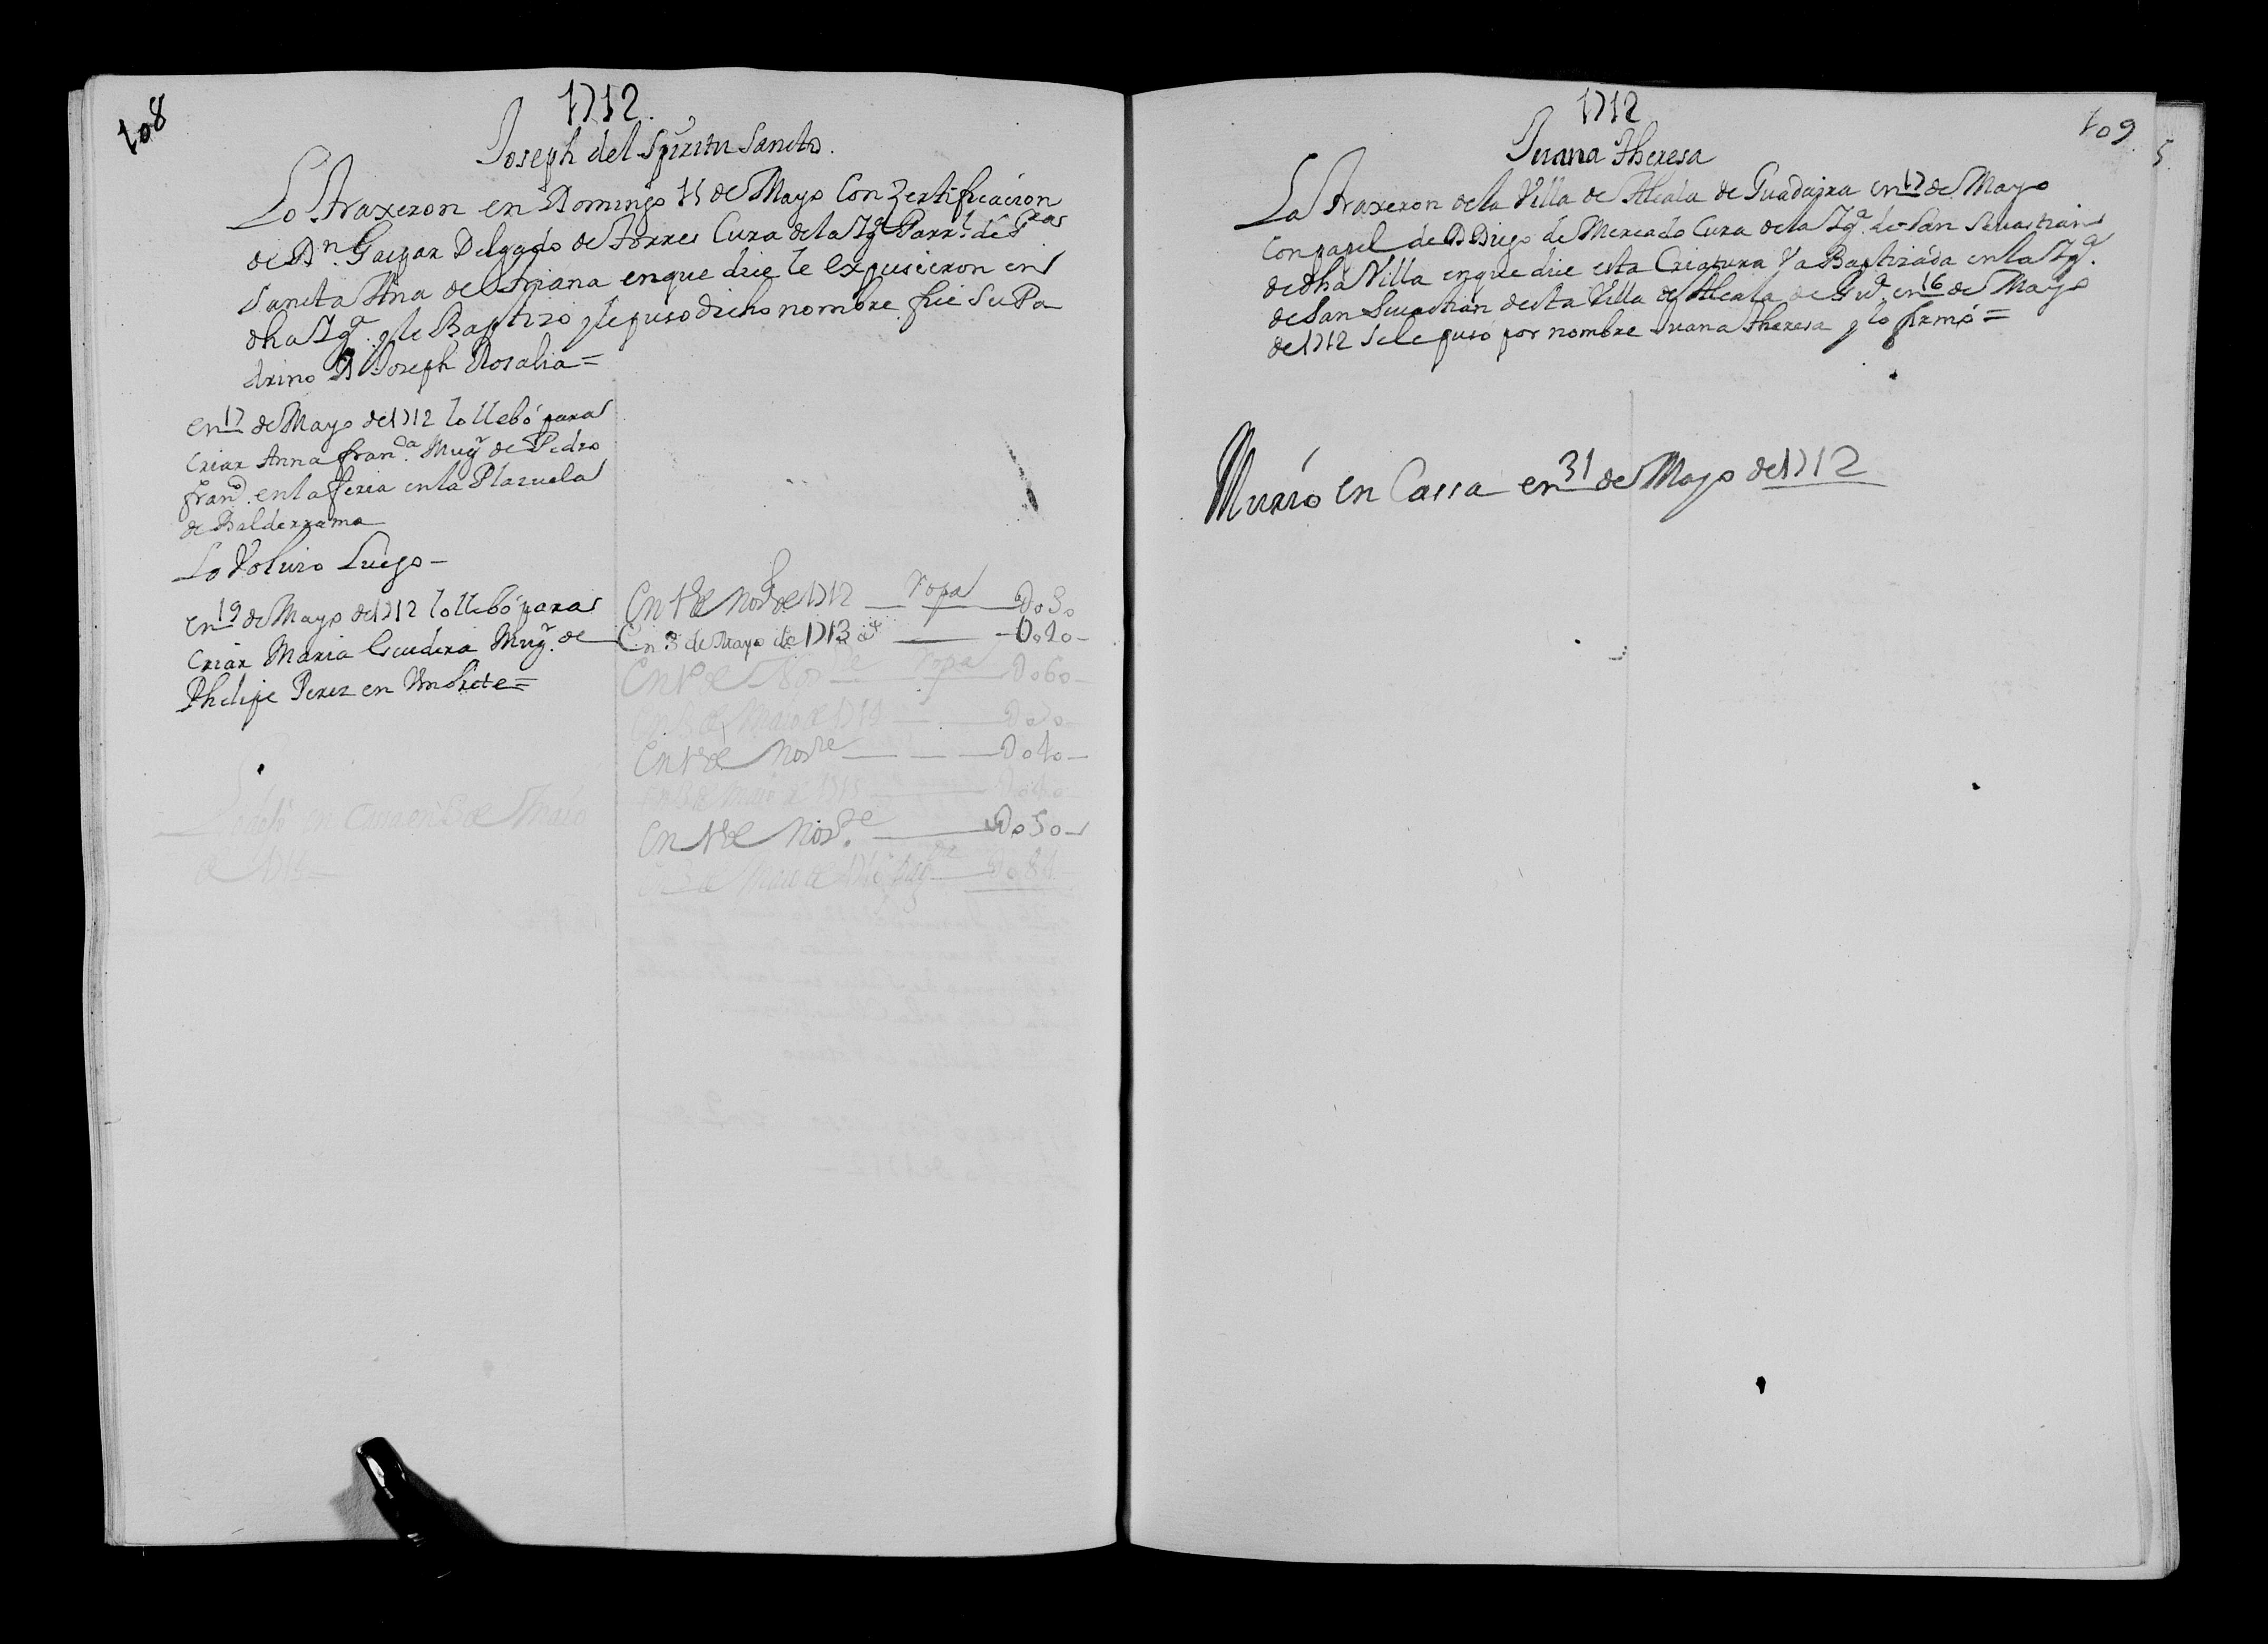 108
1712
Joseph del Spiritu Sancto.
Lo traxeron en Domingo 15 de Mayo Con Zertificacion
de Dn. Gaspar Delgado de Torres Cura de la Yga. Parrl. de Sra
Sancta Ana de Triana en que dize le expusieron en
dha Yga. y le Baptizo y le puso dicho nombre fue Su Pa
drino D Joseph Rosalia =
en 17 de Mayo de 1712 lo llebó para
Criar Anna franca. Mugr. de Pedro
franco. en la feria en la Plazuela
de Balderrama
Lo Volvio Luego -
en 19 de Mayo de 1712 lo llebó para
Criar Maria Escudera Mugr. de
Phelipe Perez en Umbrete =
En 1º de Nobre de 1712 — ropa — Do30
En 3 de Mayo de 1713 — Do20 -
En 1º de Nobre — ropa — Do60 -
En 3 de Maio de 1714 —
En 1º de Nobre — Do40 -
En 3 de Maio de 1715 —
En 1º de Nobre — Do50 -
En 3 de Maio de
en Cassa en 3 de Maio
de
1712
109
Juana Theresa
La traxeron de la Villa de Alcala de Guadayra en 17 de Mayo
Con papel de D Diego de Mercado Cura de la Yga. de San Sevastian
de dha Villa en que dize esta Criatura Va Baptizáda en la Yga.
de San Sevastian desta Villa de Alcala de Gua. en 16 de Mayo
de 1712 se le puso por nombre Juana Theresa y lo firmó =
Murió en Cassa en 31 de Mayo de 1712